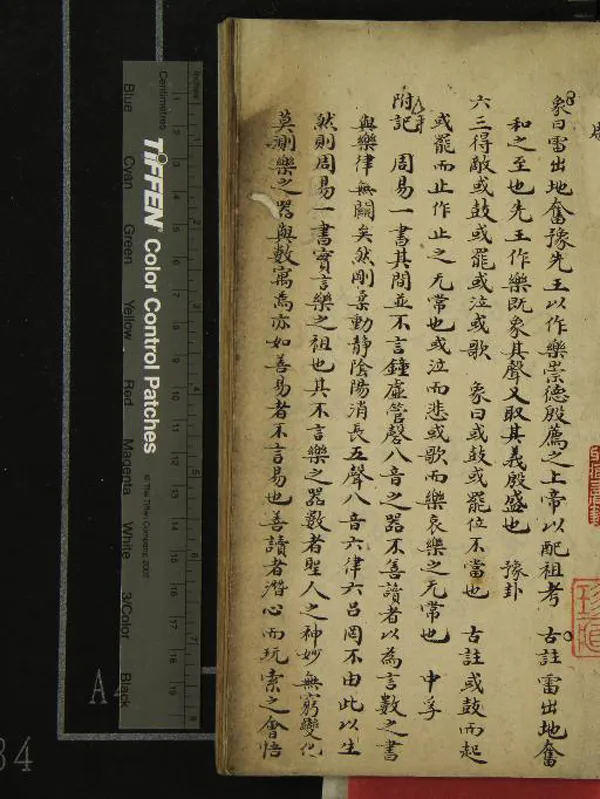 象曰雷出地奮豫先王以作樂崇德殷薦之上帝以配祖考 古註雷出地奮
和之至也先王作樂既象其聲又取其義殷盛也 豫卦
六三得敵或鼓或罷或泣或歌 象曰或鼓或罷位不當也 古註或鼓而起
或罷而止作止之无常也或泣而悲或歌而樂哀樂之无常也 中孚
附記 周易一書其間並不言鐘虛管磬八音之器不善讀者以為言數之書
與樂律無關矣然剛柔動靜陰陽消長五聲八音六律六呂罔不由此以生
然則周易一書實言樂之祖也其不言樂之器數者聖人之神妙無窮變化
莫測樂之器與數寓焉亦如善易者不言易也善讀者潛心而玩索之會悟
Centimetres
Inches
TIFFEN Color Control Patches
© The Tiffen Company, 2007
Blue
Cyan
Green
Yellow
Red
Magenta
White
3/Color
Black
A
34